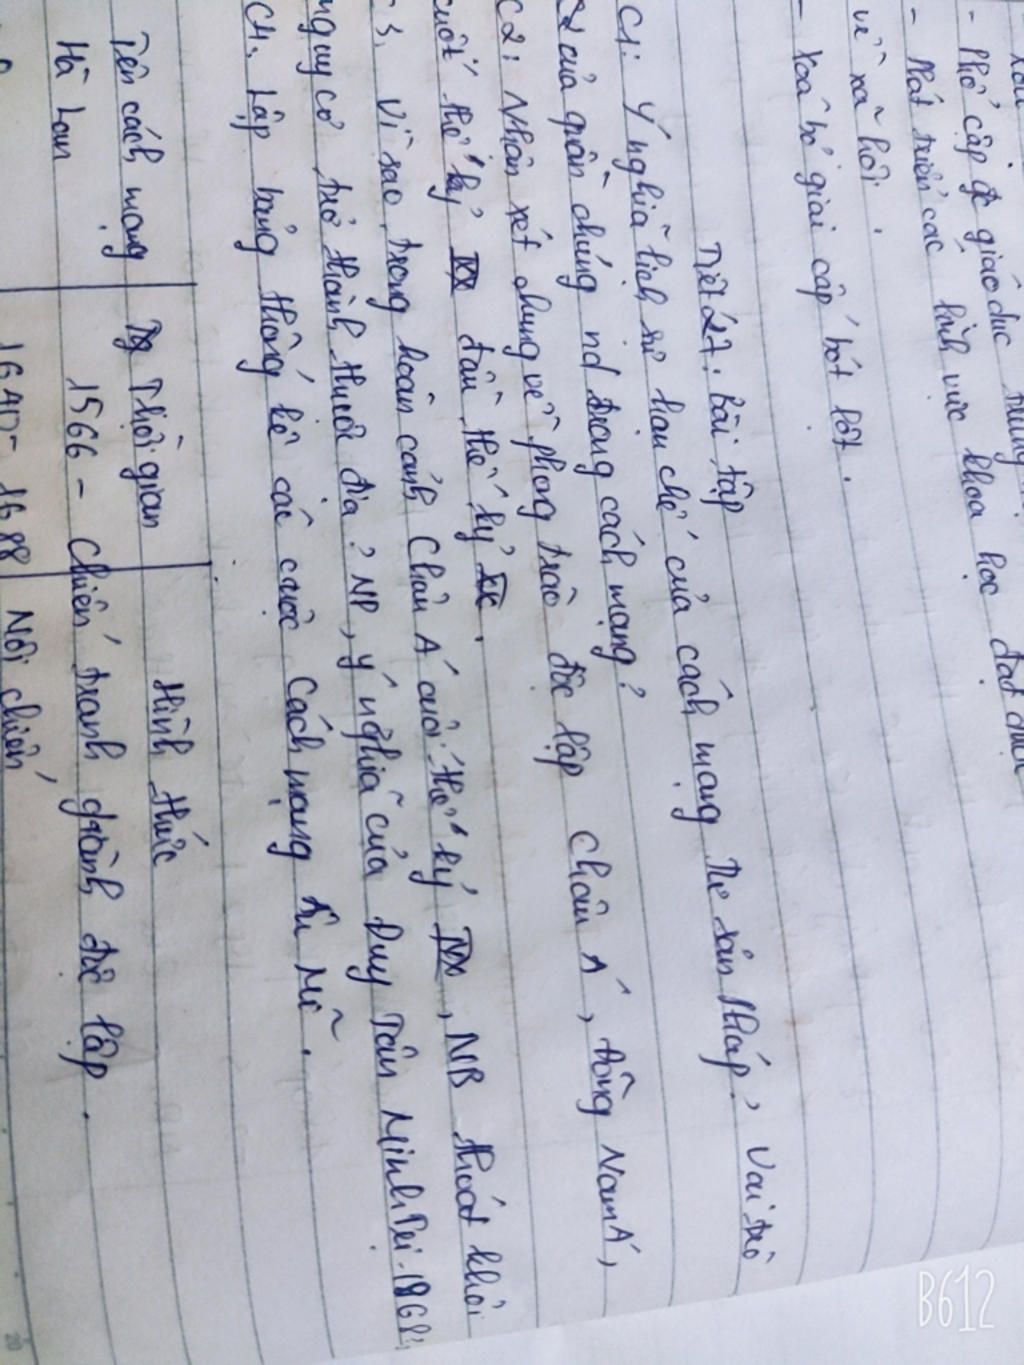 - Phổ cập gd giáo dục
- Phát triển các lĩnh vực khoa học đạt được
về xã hội.
- Xoá bỏ giai cấp bót lột.
Tiết 27: Bài tập
C1: Ý nghĩa lịch sử hạn chế của cách mạng Tư sản Pháp? Vai trò
của quần chúng nd trong cách mạng?
C2: Nhận xét chung về phong trào độc lập Châu Á, Đông Nam Á,
cuối thế kỷ IXX đầu thế kỷ XX.
3. Vì sao trong hoàn cảnh Châu Á cuối thế kỷ IXX, NB thoát khỏi
nguy cơ trở thành thuộc địa? NP, ý nghĩa của Duy Tân Minh Trị 1868
C4. Lập bảng thống kê các cuộc Cách mạng Âu Mĩ.
Tên cách mạng Thời gian Hình thức
Hà Lan 1566 - Chiến tranh giành độc lập.
1640 - 1688 Nội chiến
B612